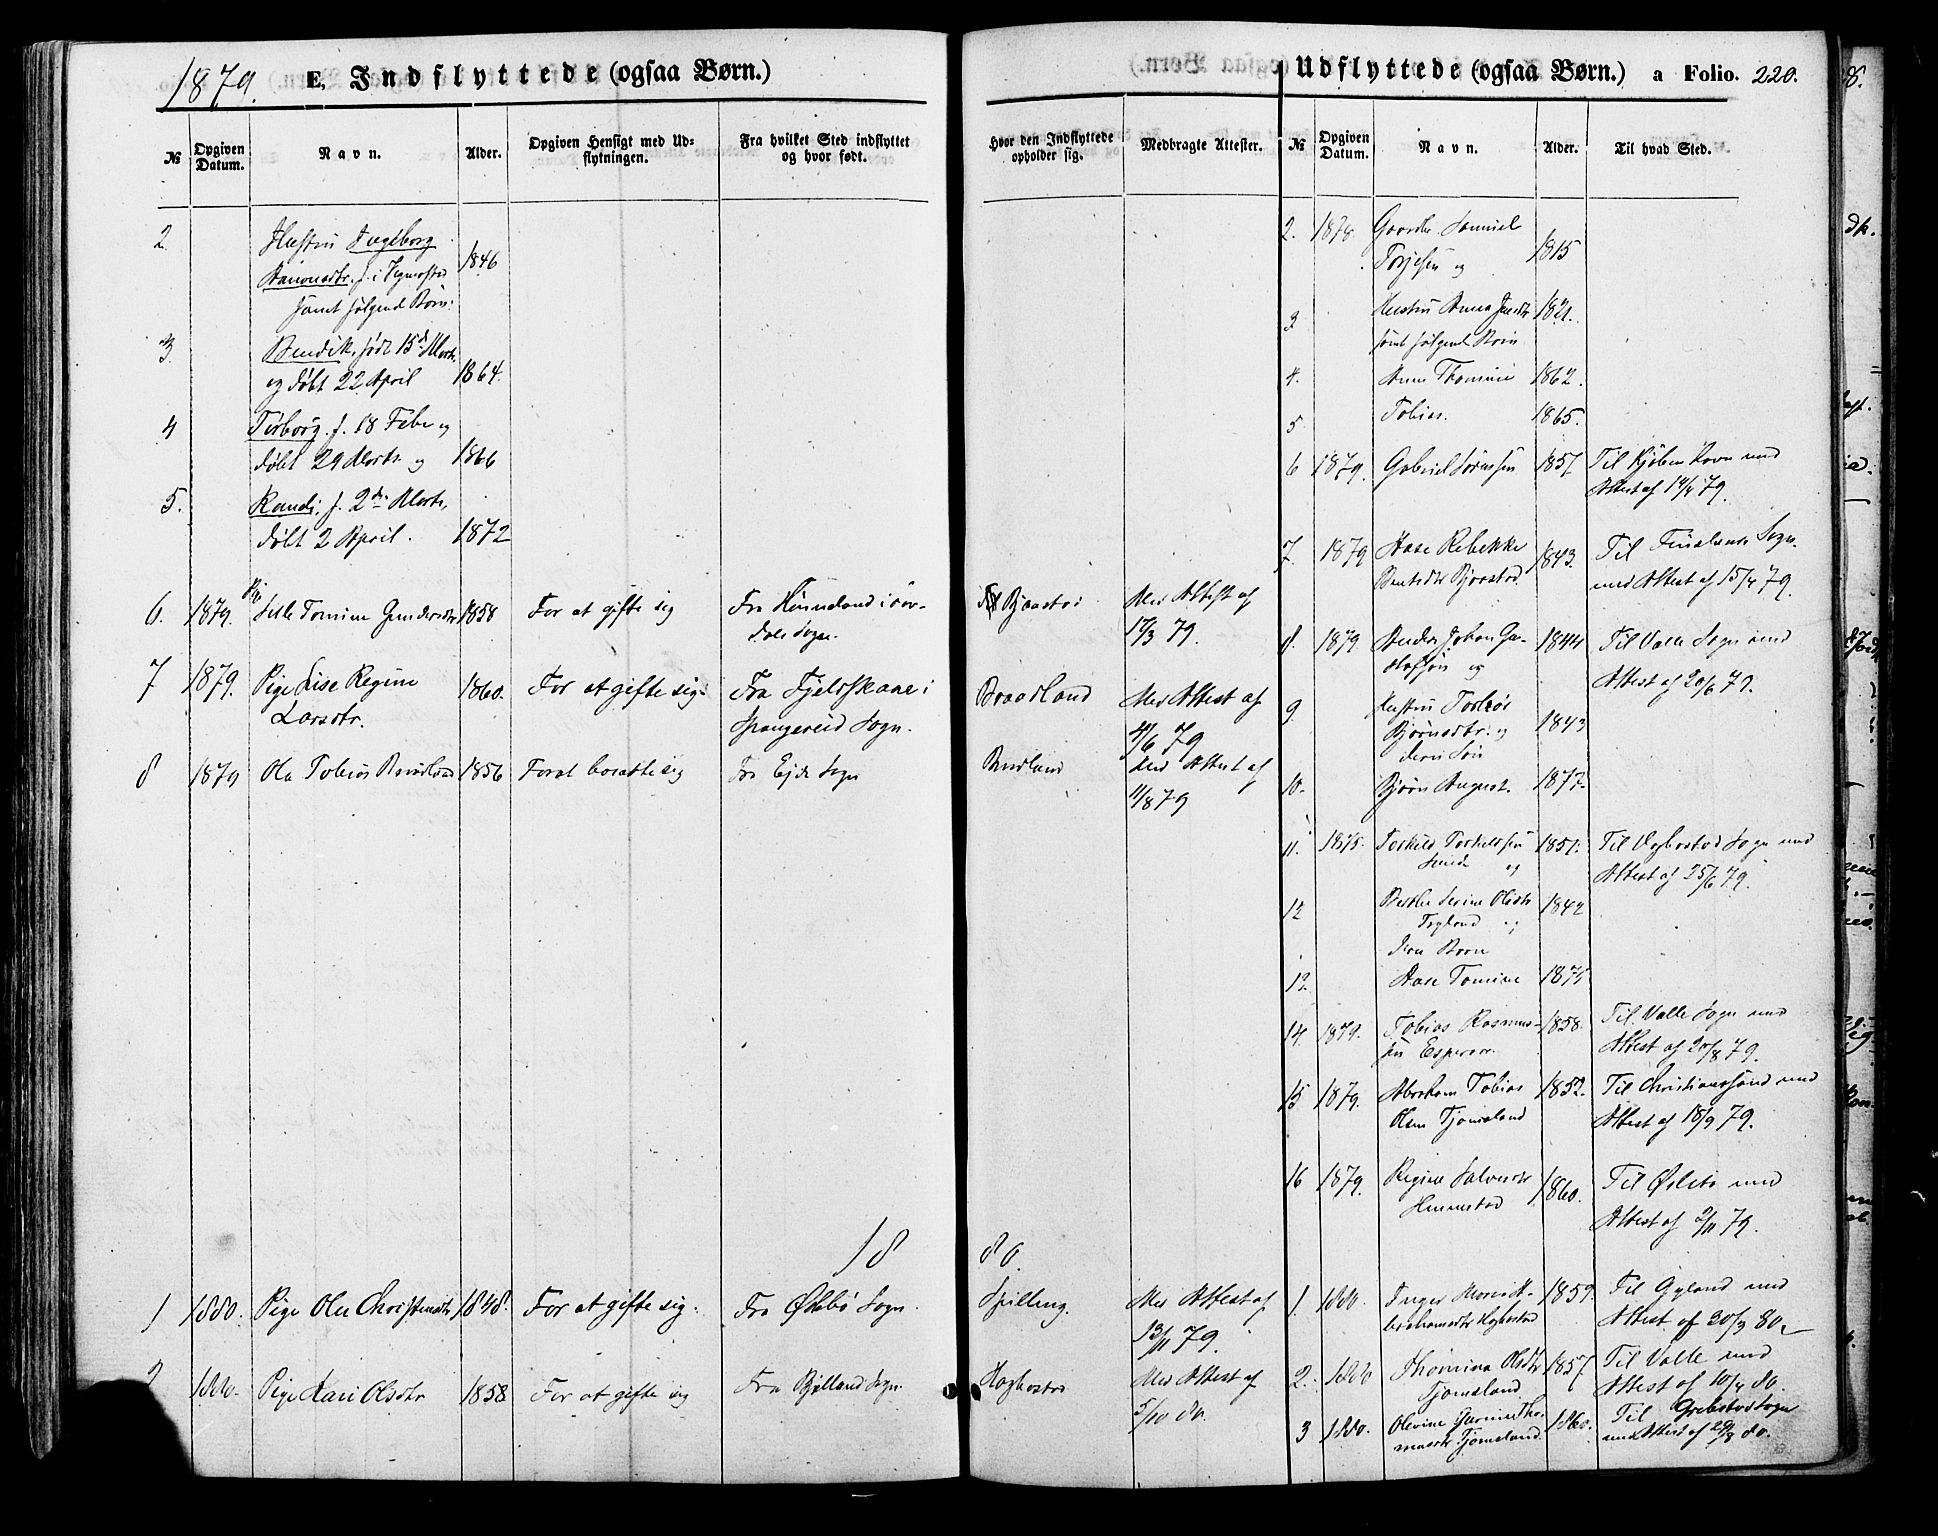 1879.
E. Indflyttede (ogsaa Børn.)
№
Opgiven Datum.
Navn.
Alder.
Opgiven Hensigt med Ud-
flytningen.
Fra hvilket Sted indflyttet
og hvor født.
2.
Hustru Ingeborg
1846
samt følgende Børn:
3.
Bendik, født 15d Marts
og døbt 22 April 1864.
4
Torborg. f. 18 Febr og
døbt 29 Marts og 1866
5.
Randi. f. 2den Marts,
døbt 2 April. 1872
6. 1879. Pig Sille Tomine Gundersdtr 1858 For at gifte sig Fra
dals Sogn.
Bjaastad Med Attest af
17/3 79.
7 1879. Pige Lise Regine 1860. For at gifte sig. Fra Fjeldskaar i
Larsdtr. Spangereid Sogn.
Braadland Med Attest af
4/6 79
8 1879 Ola Tobias 1856 For at bosætte sig Fra Eide Sogn
Med Attest af
11/8 79
18
1 1880. Pige Christensdtr 1848. For at gifte sig. Fra Øslebø Sogn.
Spilling. Med Attest af
13/11 79.
2 1880. Pige Kari Olsdtr 1858 For at gifte sig Fra Bjelland Sogn.
Høghestad Med Attest af
5/10 80.
Hvor den Indflyttede
opholder sig.
Medbragte Attester.
80.
Udflyttede (ogsaa Børn.) a Folio. 220.
№
Opgiven Datum.
Navn.
Alder.
Til hvad Sted.
2. 1878. Gaardbr. Samuel
Torjesen og 1815
3 Hustru Anna Jensdtr 1821.
samt følgende Børn
4. Anne Thomine 1862.
5 Tobias. 1865.
6 1879. Gabriel Sørensen 1857 Til Kjøbenhavn med
Attest af 14/4 79.
7. 1879 Aase Rebekke 1843. Til Finslands Sogn.
Bentsdtr Bjaastad. med Attest af 15/4 79.
8. 1879. Anders Johan Gu- 1844 Til Valle Sogn med
stafsøn og Attest af 20/6 79.
9 Hustru Torbør
Bjørnsdtr. og 1843
deres Søn
10. Bjørn August. 1877.
11. 1875. Torkild Torkildsen 1851. Til Vegbostad Sogn med
og Attest af 25/6 79.
12 Berthe Serine Olsdtr 1842
Trygland og
dere Børn
12 Aase Tomine 1875
14. 1879. Tobias Rasmus- 1858. Til Valle Sogn med
sen Attest af 20/8 79.
15 1879. Abraham Tobias 1852. Til Christianssand med
Olsen Tjomsland Attest af 18/9 79.
16 1879. Regine Salvesdtr 1860. Til Øslebø med
Himmestad Attest af 2/11 79.
1. 1880. Inger Marie A- 1859. Til Gyland med
brahamsdtr Høghestad Attest af 20/3 80.
2. 1880 Thomine Olsdtr 1857 Til Valle med
Tjomsland Attest af 10/4 80.
3 1880. Olevine Gurine Tho- 1860. Til Grebstad Sogn
masdtr Tjomsland. med Attest af 29/8 80.